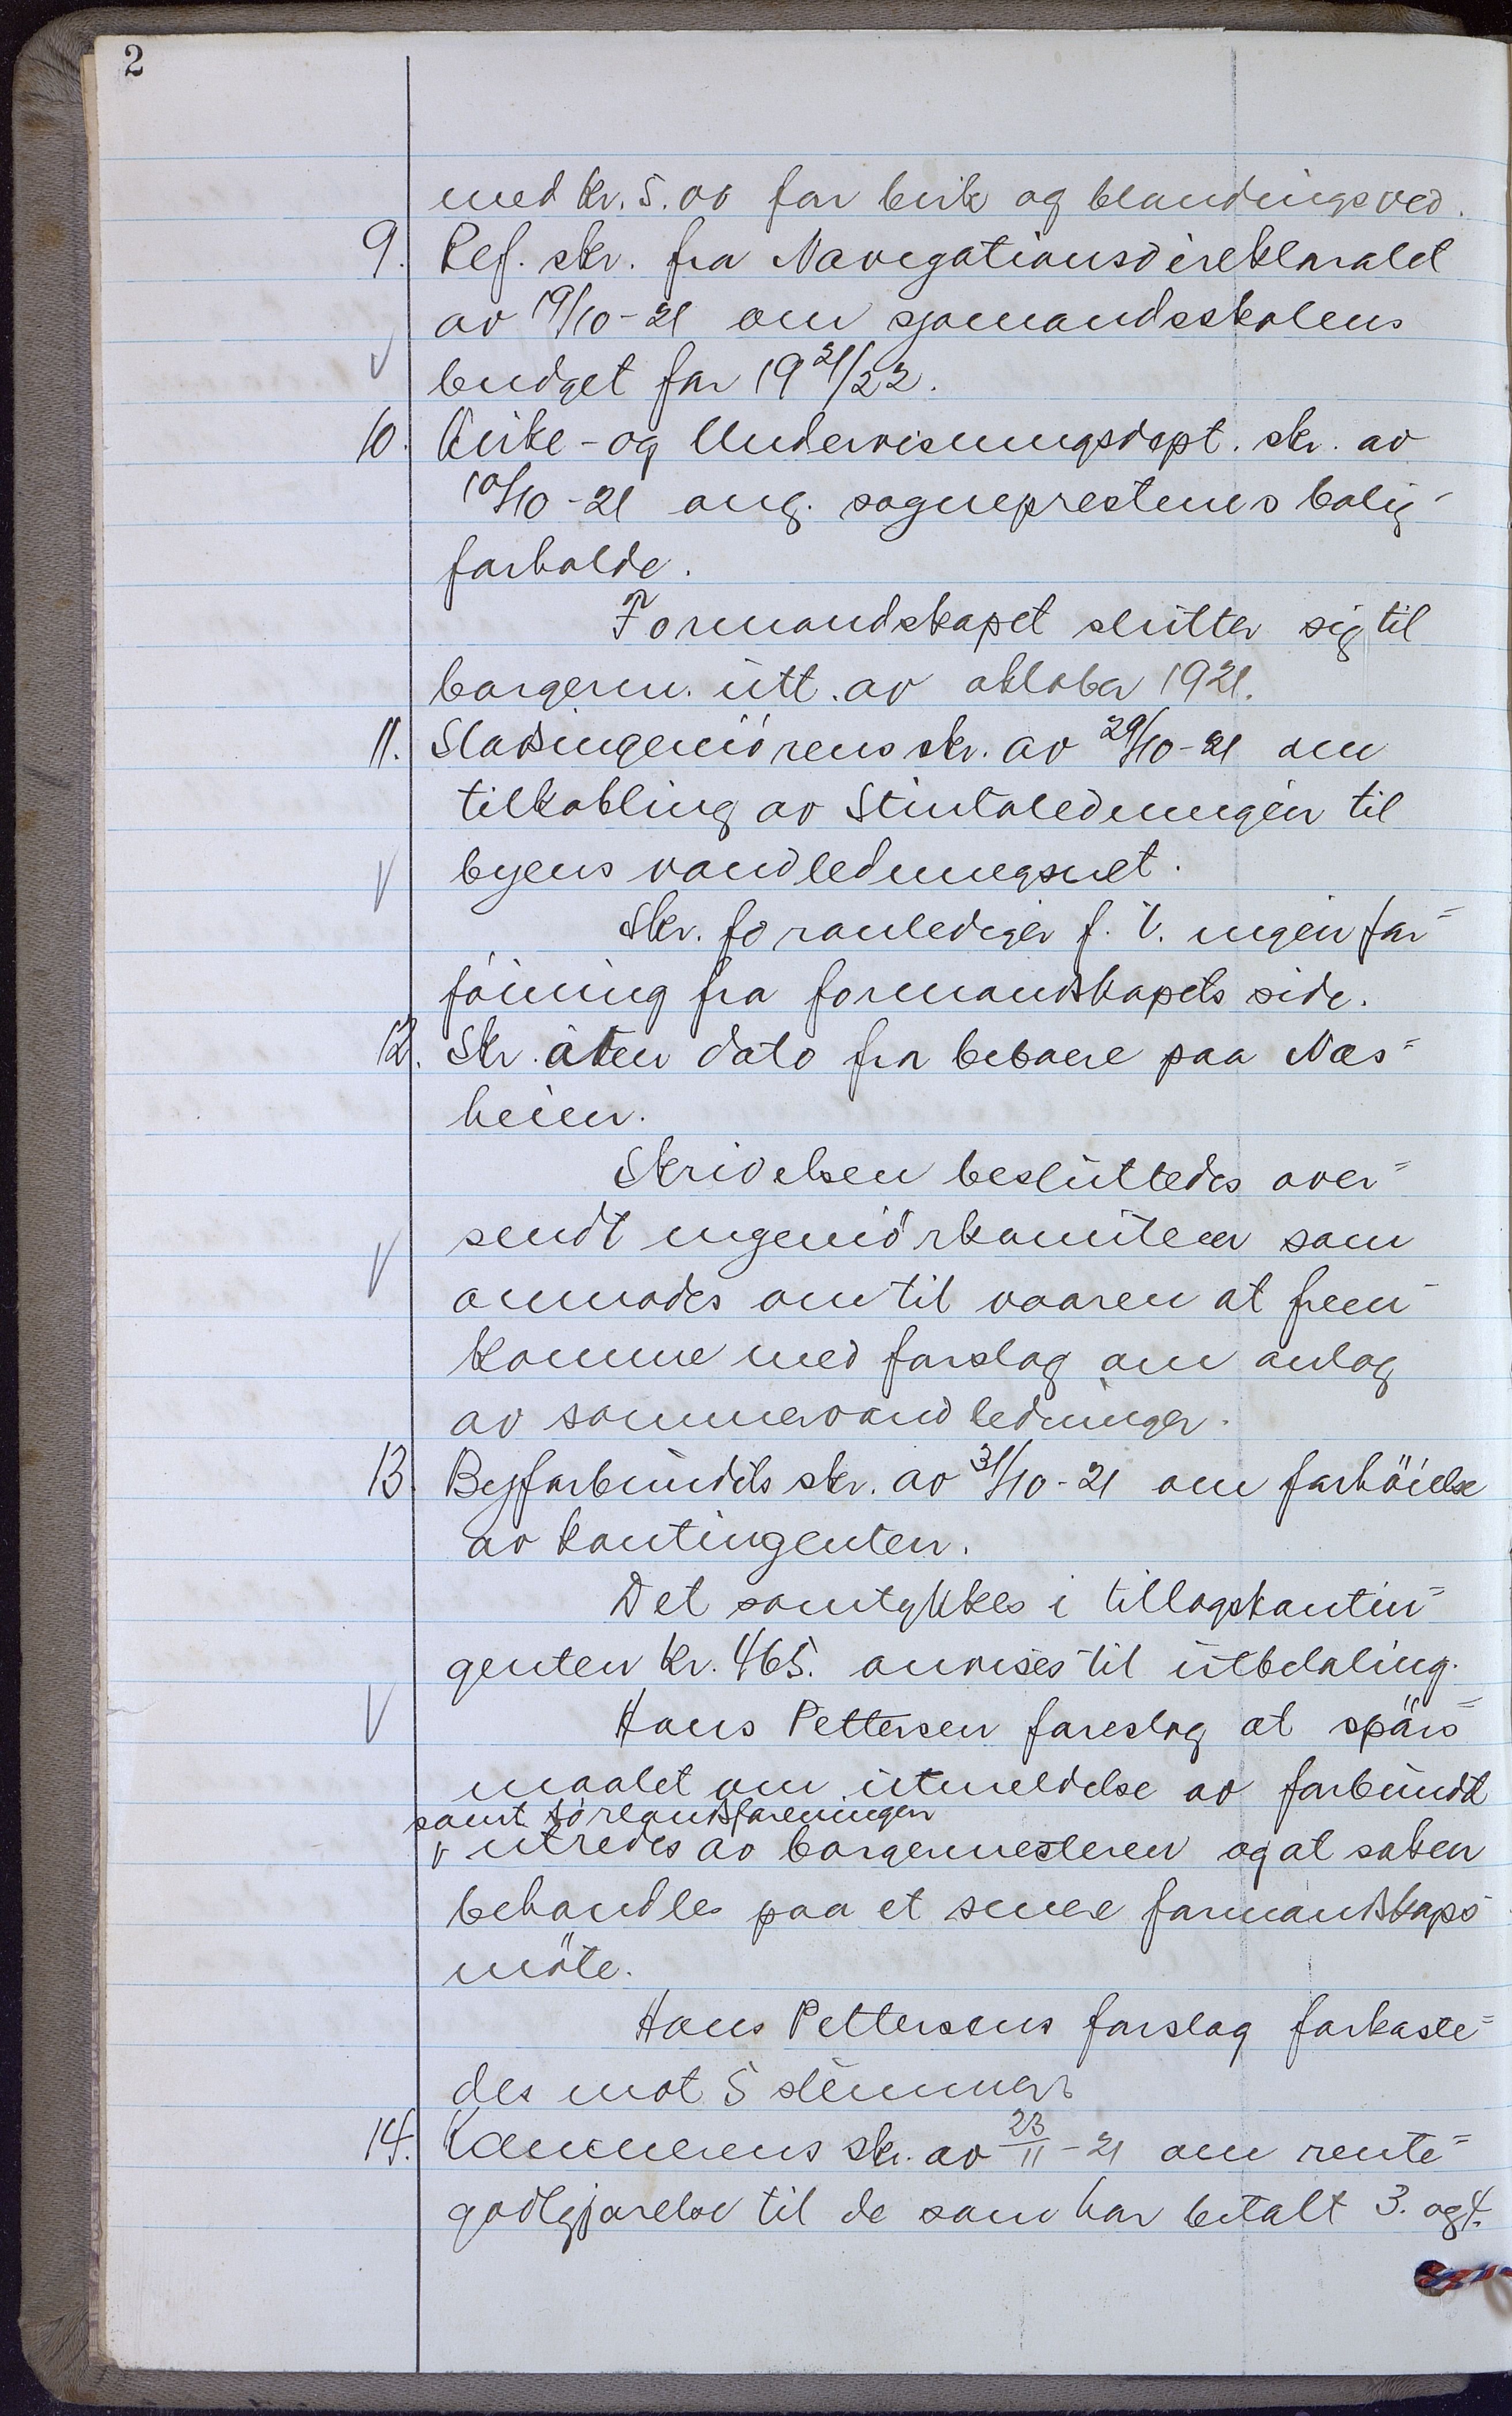 2
med kr. 5.00 for birk og blandingsved.
9. Ref. skr. fra Navigationsdirektoratet
av 19/10-21 om sjomandsskolens
budget for 1921/22.
10. Kirke- og Undervisningsdept. skr. av
10/10-21 ang. sogneprestens bolig-
forholde.
Formandskapet slutter sig til
borgerm. utt. av oktober 1921.
11. Stadsingeniörens skr. av 29/10-21 om
tilkobling av Stintaledningen til
byens vandledningsnet.
Skr. foranlediger f. t. ingen for=
föining fra formandskapets side.
12. Skr. uten dato fra beboere paa Nes=
heien.
Skrivelsen besluttedes over=
sendt ingeniörkomiteen som
anmodes om til vaaren at frem-
komme med forslag om anlæg
av sommervandledninger.
13. Byforbundets skr. av 31/10-21 om forhöielse
av kontingenten.
Det samtykkes i tillægskontin=
genten kr. 465. anvises til utbetaling.
Hans Pettersen foreslog at spörs=
maalet om utmeldelse av forbundet
samt Sörlandsforeningen
v utredes av borgermesteren og at saken
behandles paa et senere formandskaps-
möte.
Hans Pettersens forslag forkaste=
des mot 5 stemmer.
14. Kæmnerens skr. av 23/11-21 om rente=
godtgjorelse til de som har betalt 3. og 4.